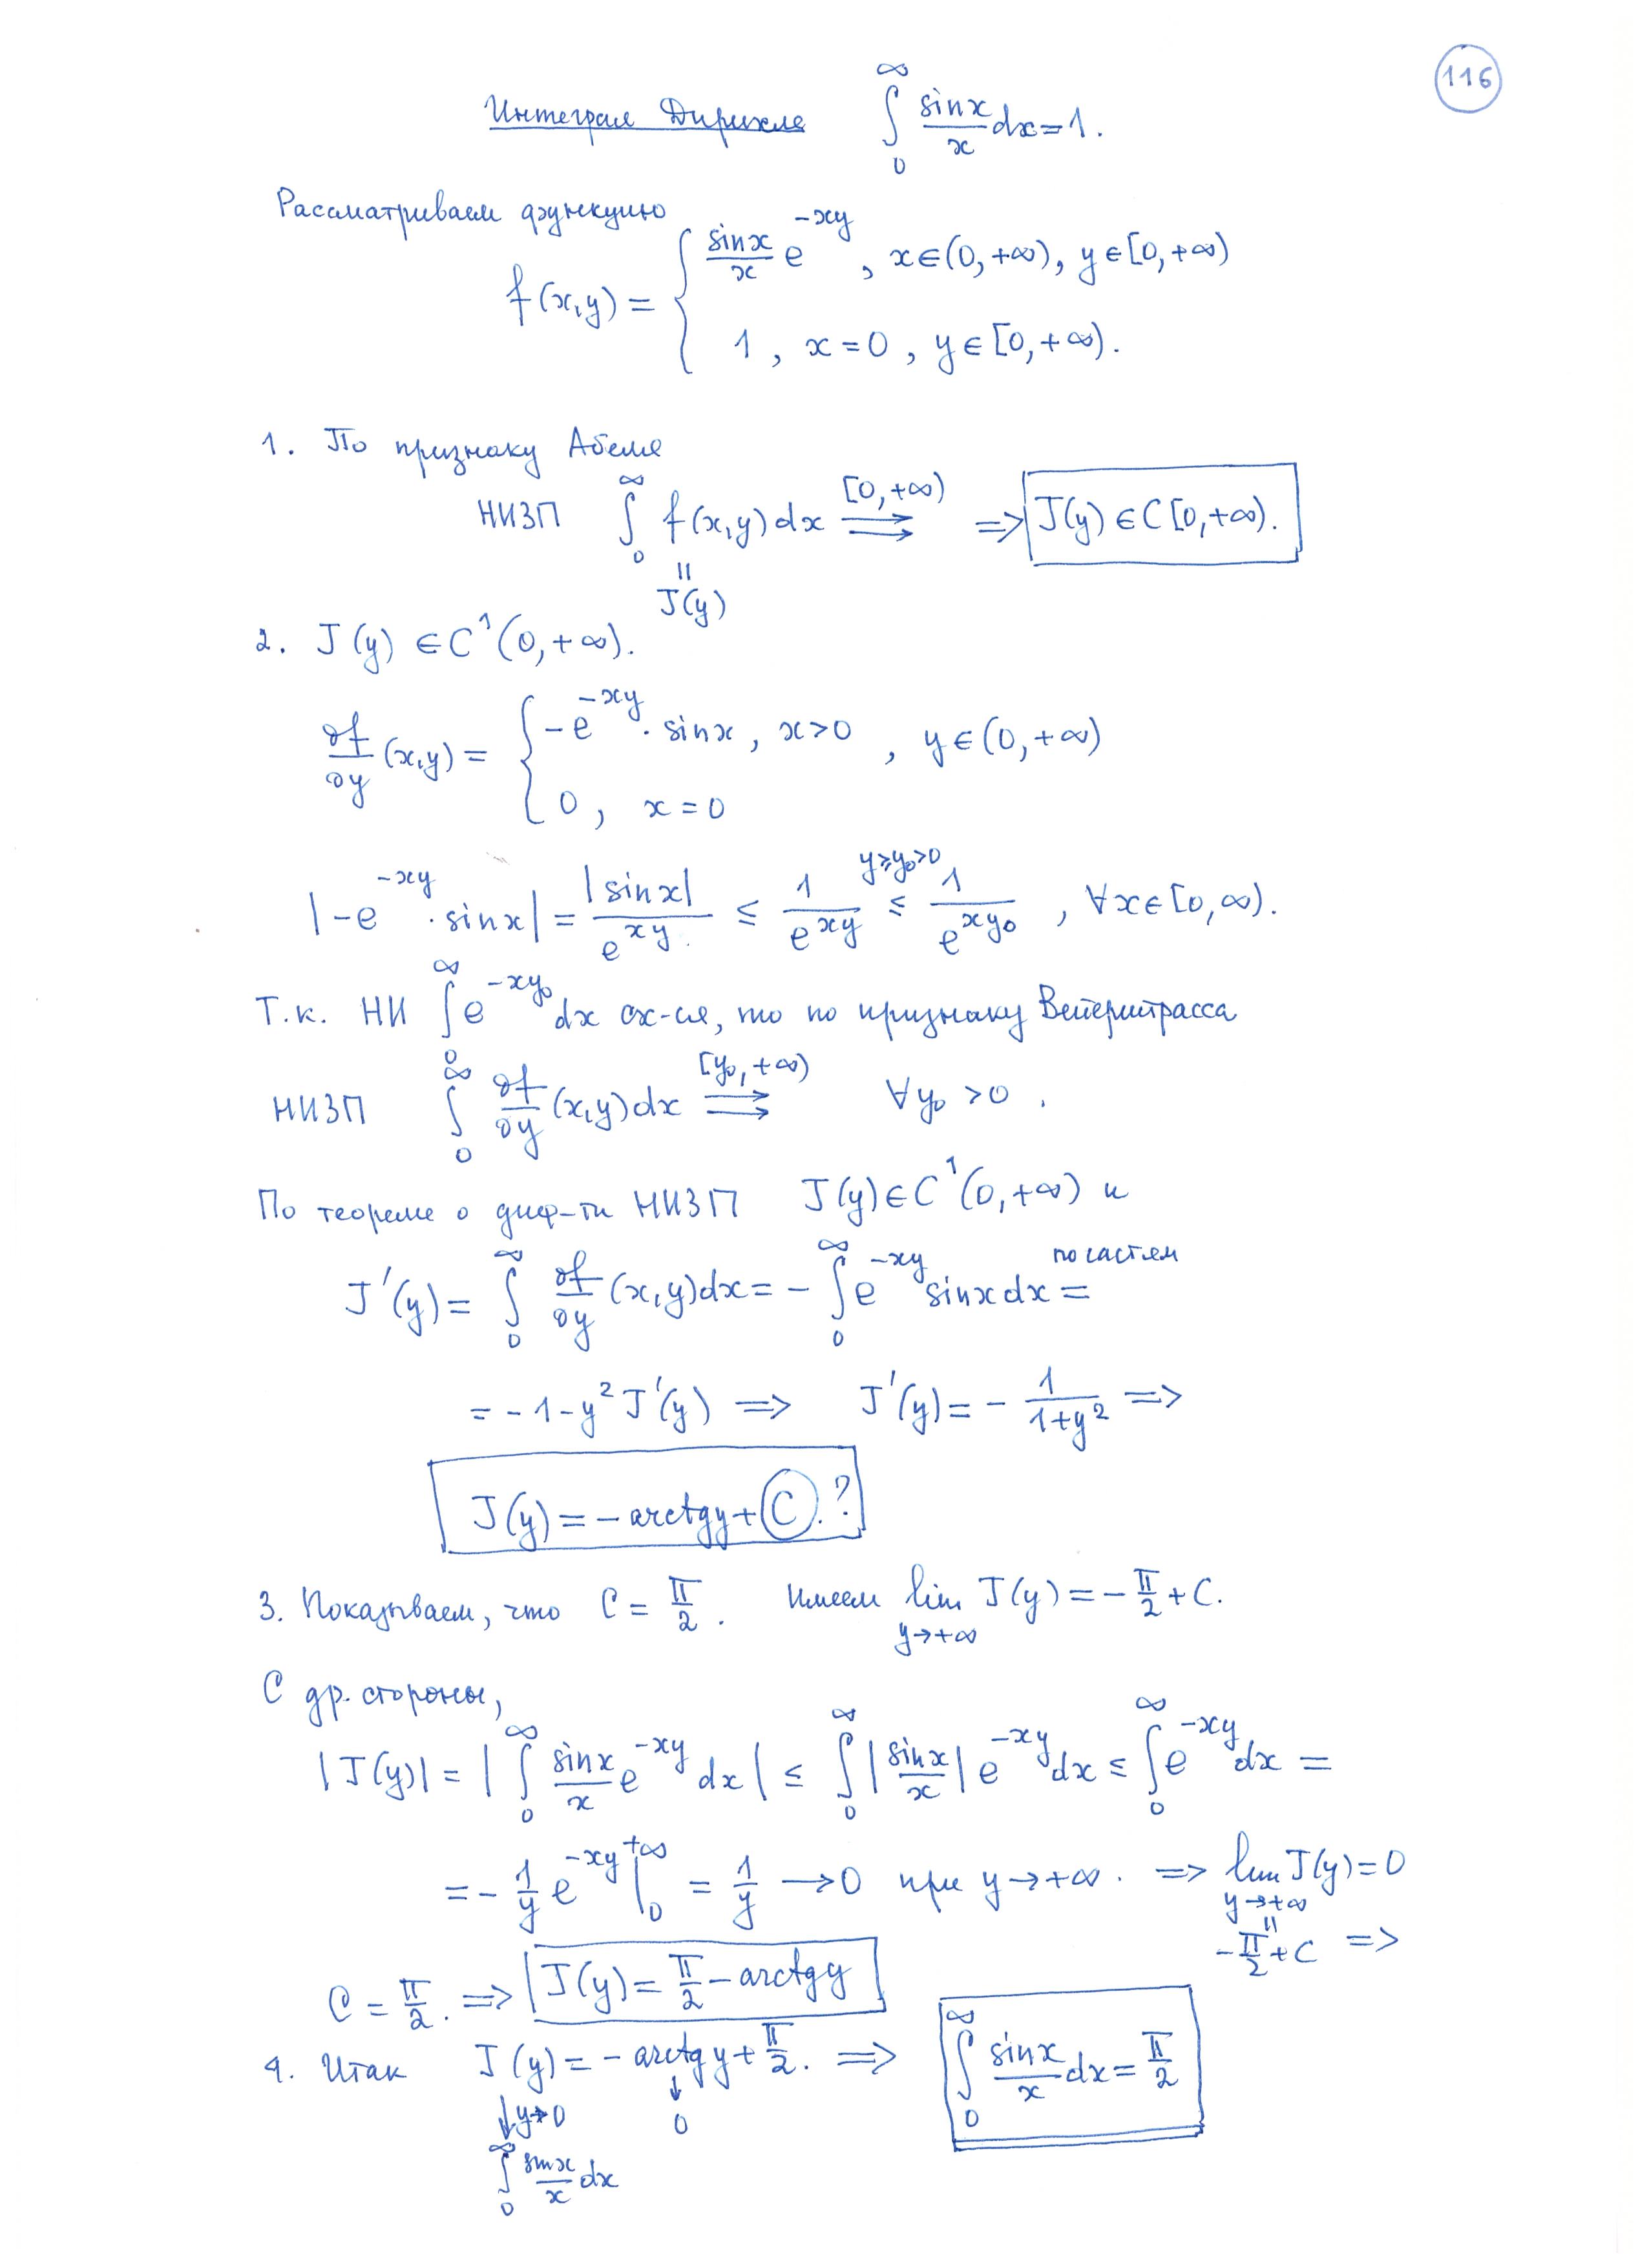 116
Интеграл Дирихле ∫₀^∞ sinx/x dx = 1.
Рассматриваем функцию
f(x,y) = { sinx/x e^{-xy}, x∈(0,+∞), y∈[0,+∞)
1, x=0, y∈[0,+∞).
1. По признаку Абеля
НИЗП ∫₀^∞ f(x,y)dx ⇉ [0,+∞) => J(y)∈C[0,+∞).
|| J(y)
2. J(y)∈C¹(0,+∞).
∂f/∂y (x,y) = { -e^{-xy}·sinx, x>0 , y∈(0,+∞)
0, x=0
|-e^{-xy}·sinx| = |sinx|/e^{xy} ≤ 1/e^{xy} ≤ (y≥y₀>0) 1/e^{xy₀}, ∀x∈[0,∞).
Т.к. НИ ∫₀^∞ e^{-xy₀}dx сх-ся, то по признаку Вейерштрасса
НИЗП ∫₀^∞ ∂f/∂y (x,y)dx ⇉ [y₀,+∞) ∀y₀>0.
По теореме о диф-ти НИЗП J(y)∈C¹(0,+∞) и
J'(y) = ∫₀^∞ ∂f/∂y (x,y)dx = -∫₀^∞ e^{-xy}sinxdx = по частям
= -1-y²J'(y) => J'(y) = -1/(1+y²) =>
J(y) = -arctgy + C.?
3. Показываем, что C = π/2. Имеем lim_{y→+∞} J(y) = -π/2 + C.
С др. стороны,
|J(y)| = |∫₀^∞ sinx/x e^{-xy}dx| ≤ ∫₀^∞ |sinx/x| e^{-xy}dx ≤ ∫₀^∞ e^{-xy}dx =
= -1/y e^{-xy}|₀^{+∞} = 1/y → 0 при y→+∞. => lim_{y→+∞} J(y) = 0
|| -π/2 + C =>
C = π/2. => J(y) = π/2 - arctgy
4. Итак J(y) = -arctgy + π/2. => ∫₀^∞ sinx/x dx = π/2
↓ y→0 ↓ 0
∫₀^∞ sinx/x dx